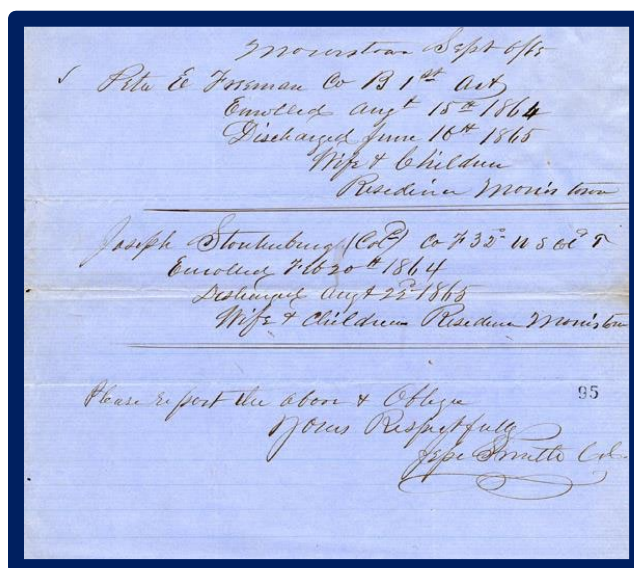 Morristown Sept 6/65
Peter E Freeman Co B 1st Art
Enrolled Augt 15th 1864
Discharged June 16th 1865
Wife & Children
Residence Morristown
Joseph Stoutenburgh (Cold) Co F 32d U S Cold T
Enrolled Feb 20th 1864
Discharged Augt 22d 1865
Wife & Children Residence Morristown
Please report the above & Oblige
95
Yours Respectfully
Jesse Smith Col